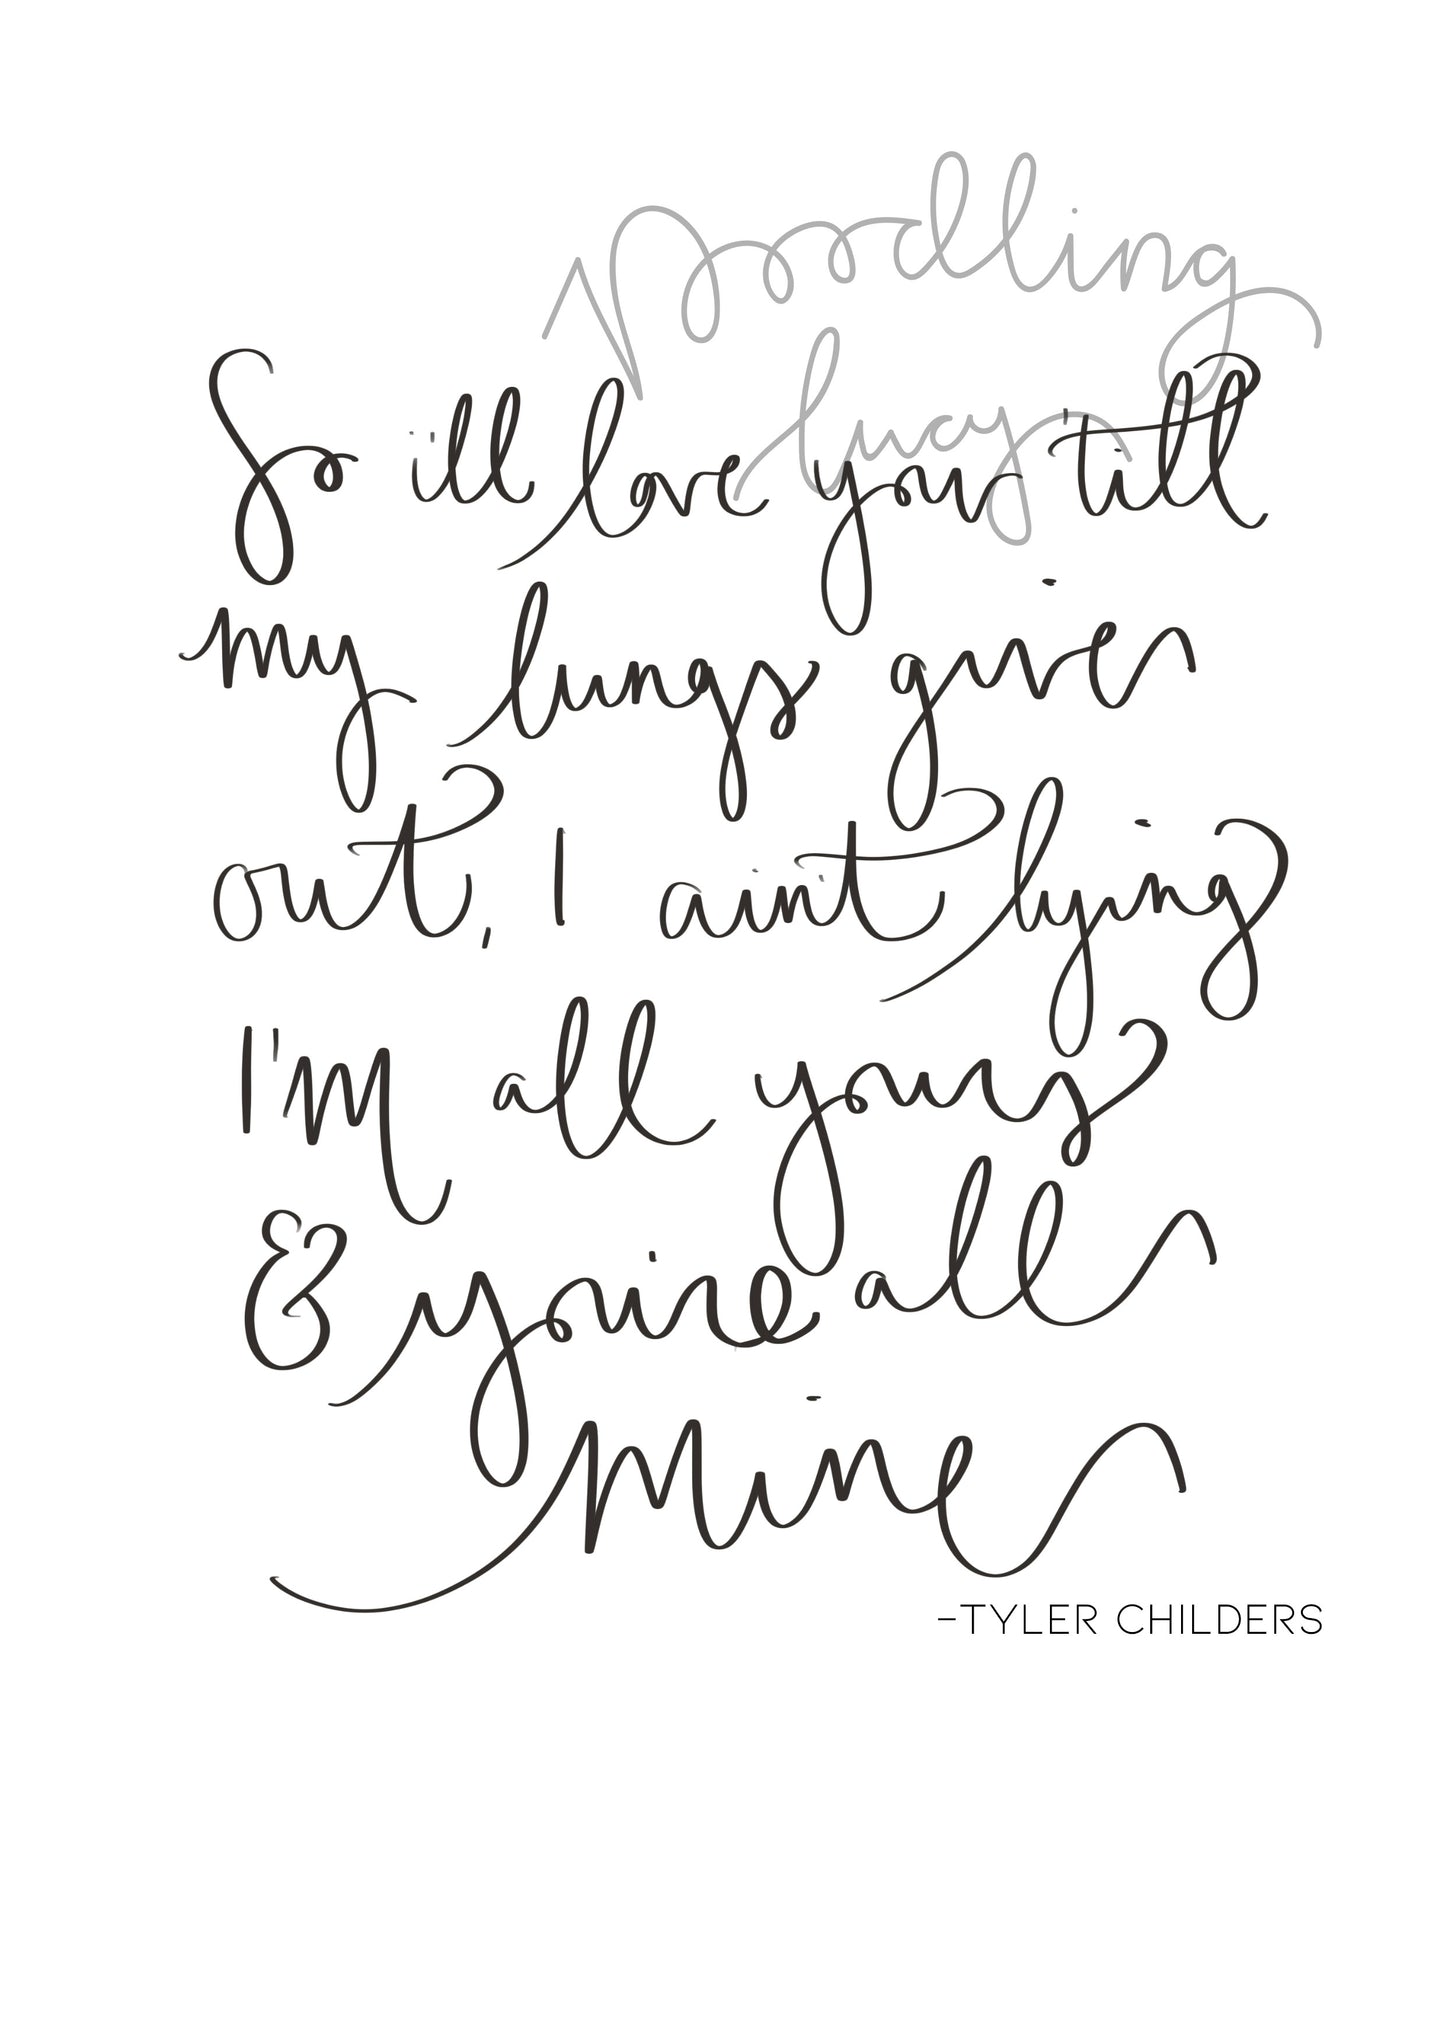 Noodling
lucy
So i'll love you 'till
my lungs give
out, I ain't lying
I'm all yours
& you're all
Mine
-TYLER CHILDERS